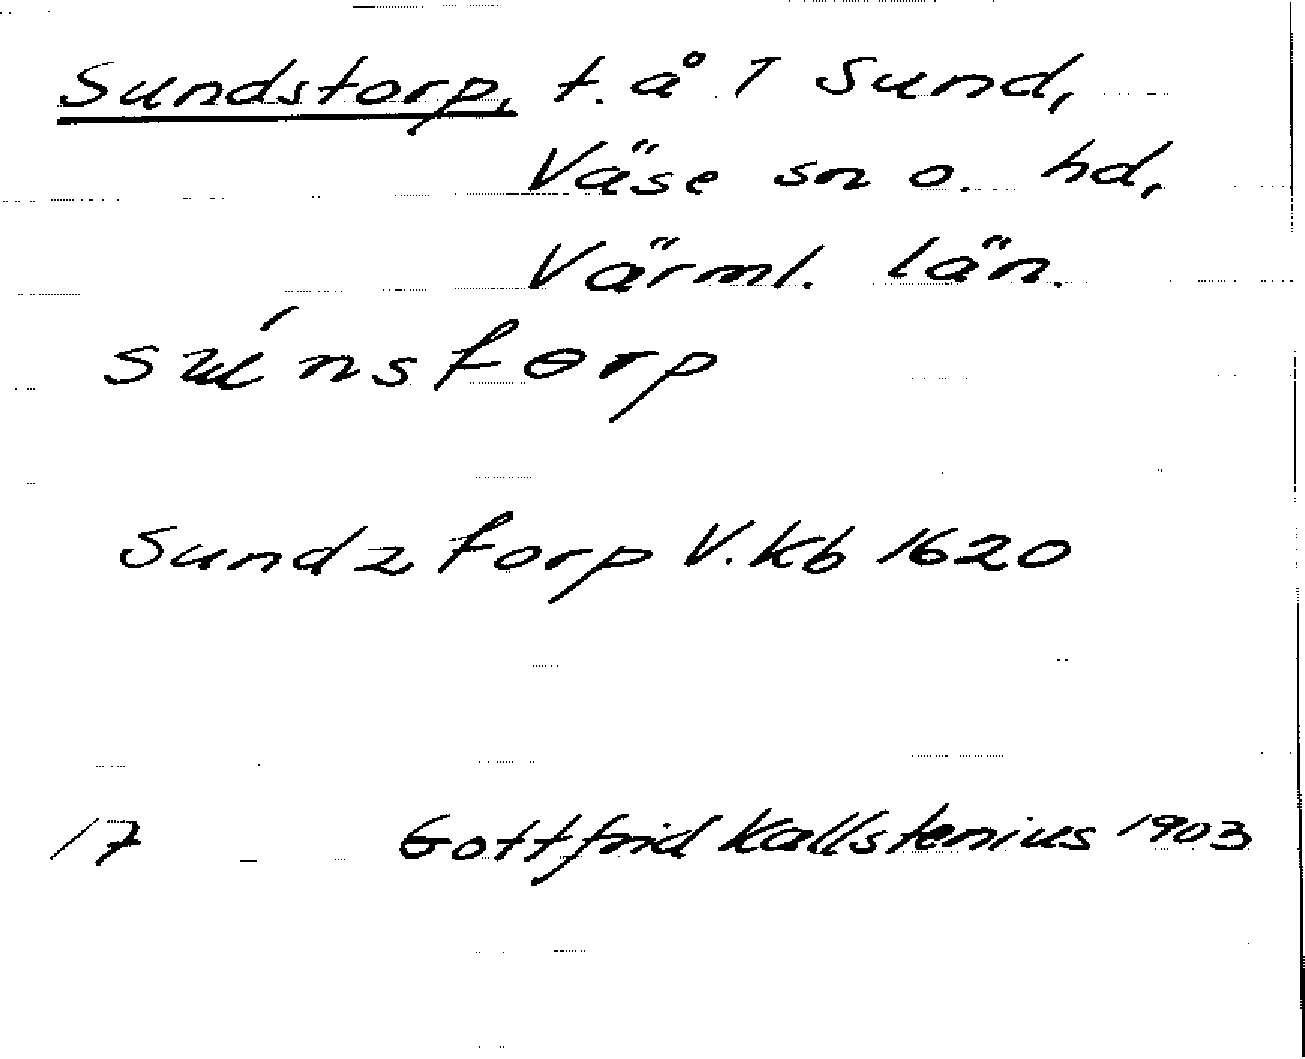 Sundstorp, t. å 1 Sund,
Väse sn o. hd,
Värml. län.
Sundztorp V.kb 1620
17 Gottfrid Kallstenius 1903